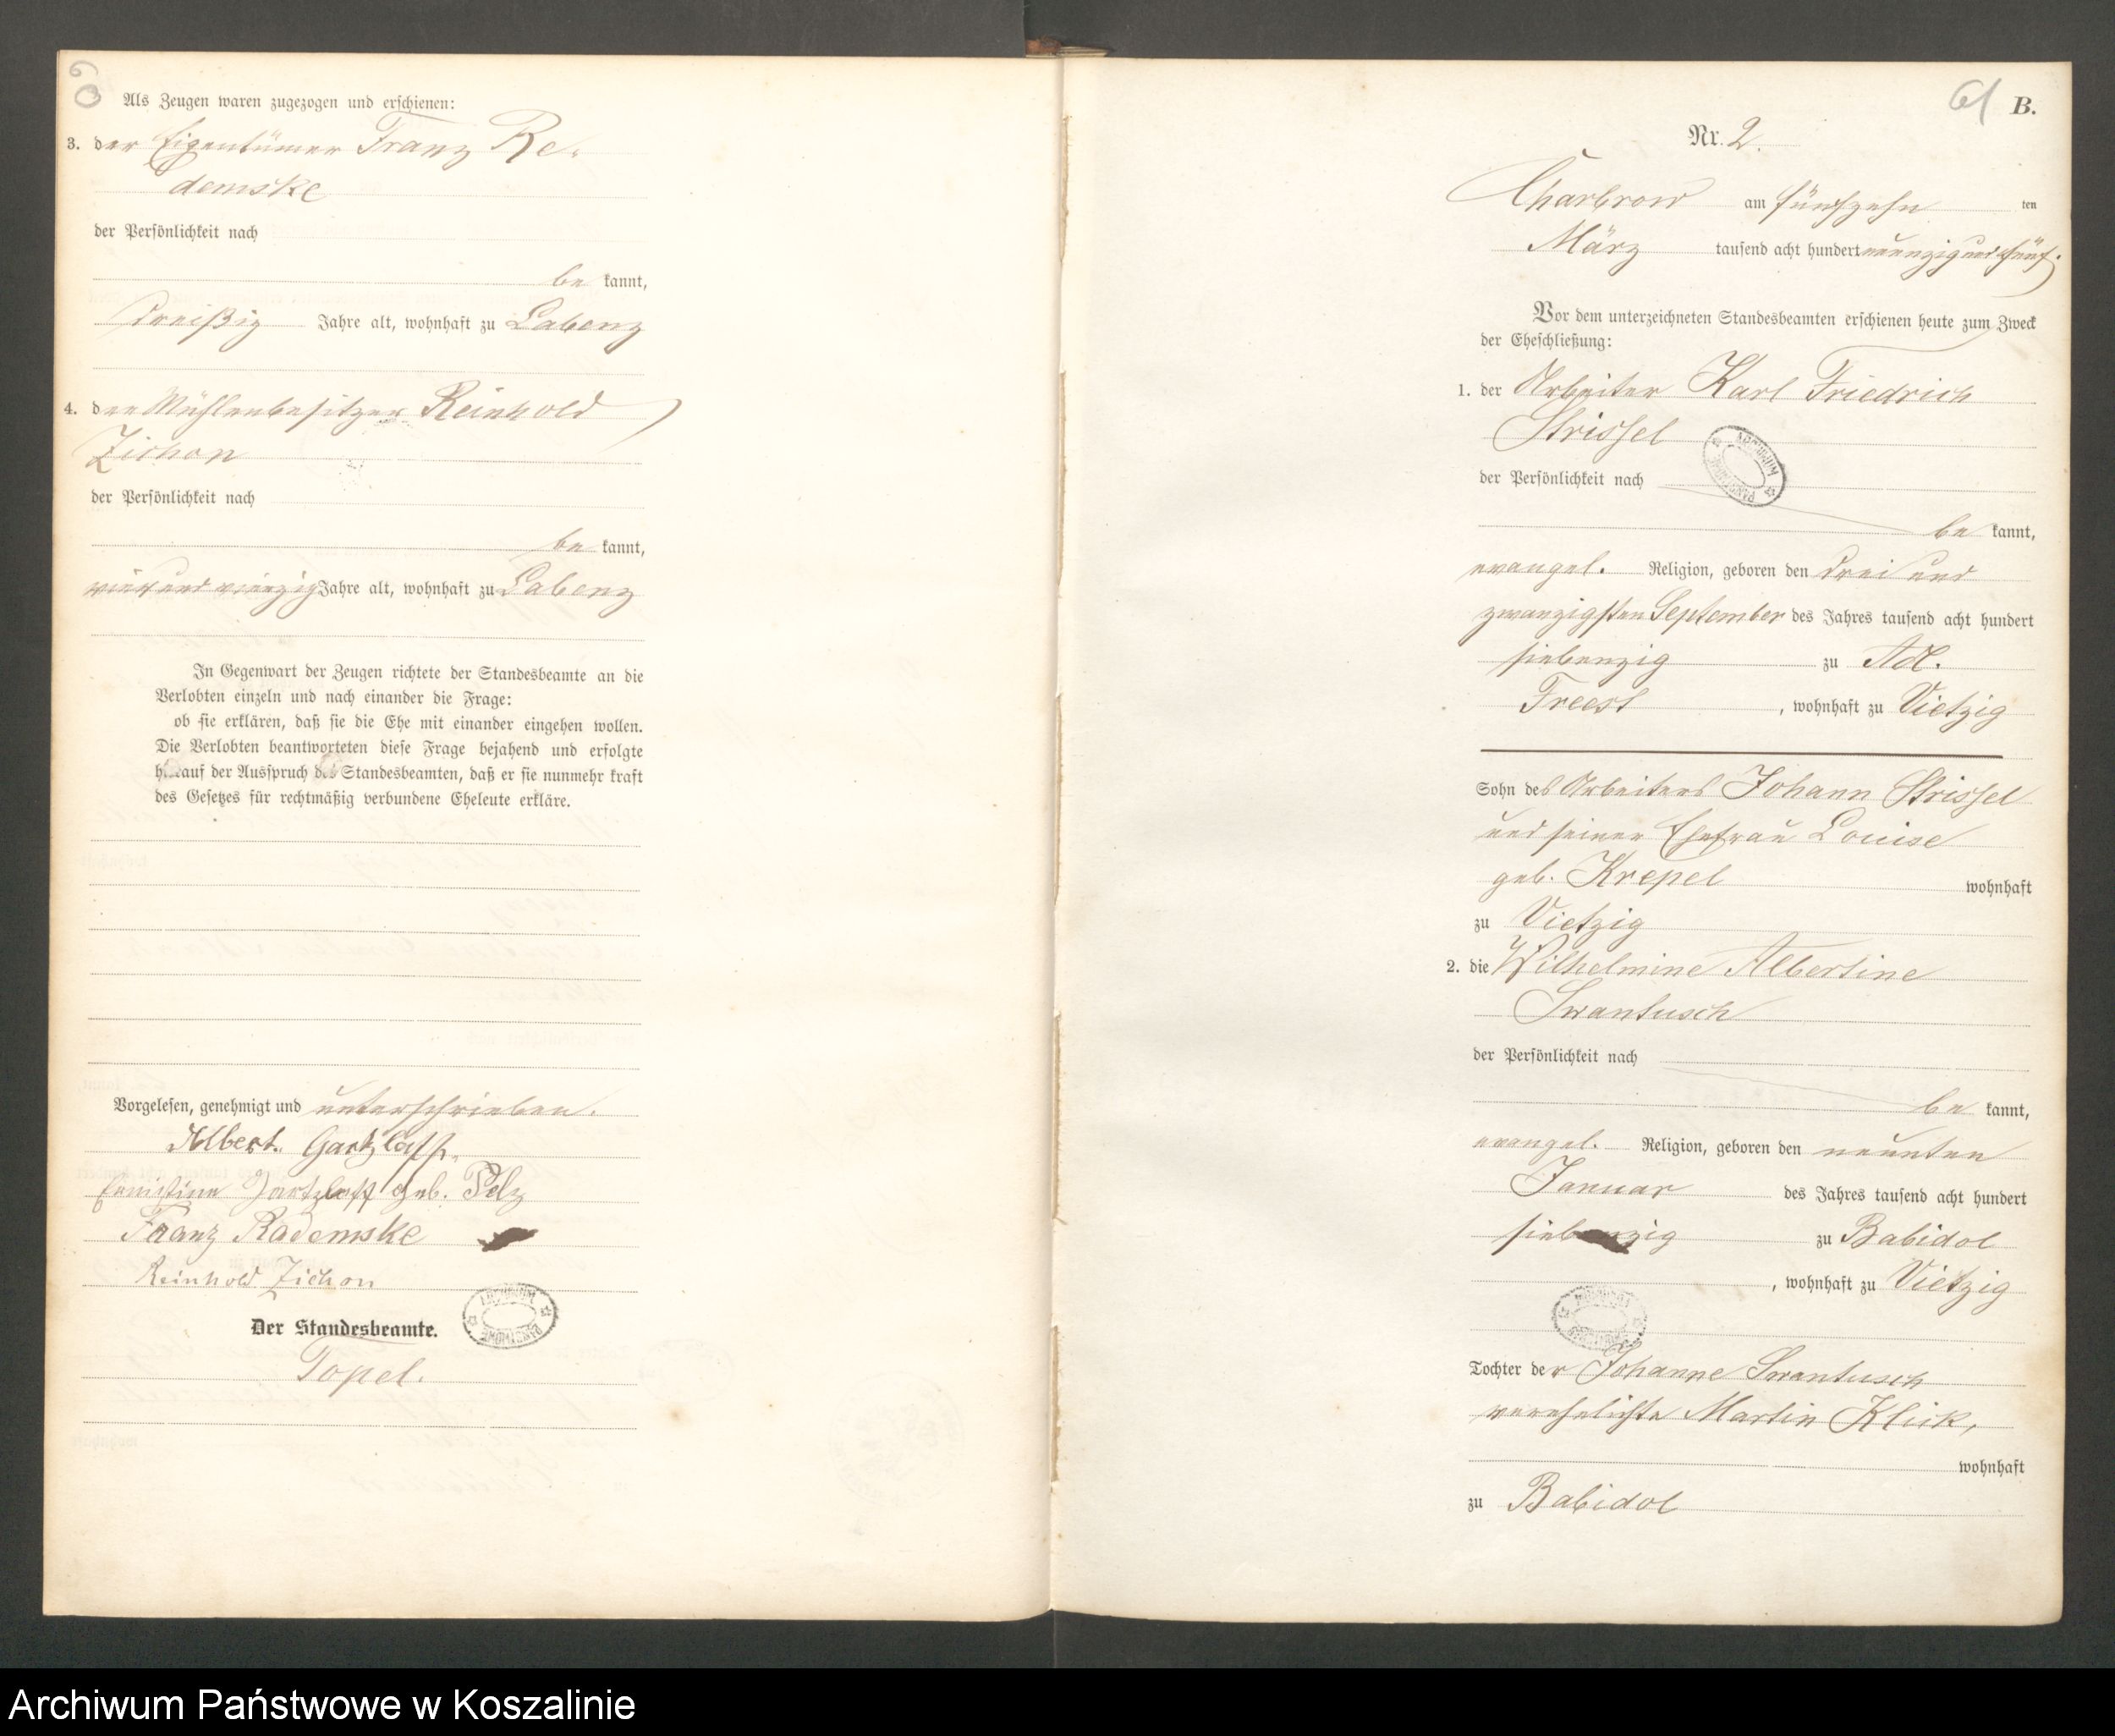 60
Als Zeugen waren zugezogen und erschienen:
3. der Eigentümer Franz Re-
demske
der Persönlichkeit nach
be kannt,
dreißig Jahre alt, wohnhaft zu Labenz
4. der Mühlenbesitzer Reinhold
Zichon
der Persönlichkeit nach
be kannt,
vier und vierzig Jahre alt, wohnhaft zu Labenz
In Gegenwart der Zeugen richtete der Standesbeamte an die
Verlobten einzeln und nach einander die Frage:
ob sie erklären, daß sie die Ehe mit einander eingehen wollen.
Die Verlobten beantworteten diese Frage bejahend und erfolgte
hierauf der Ausspruch des Standesbeamten, daß er sie nunmehr kraft
des Gesetzes für rechtmäßig verbundene Eheleute erkläre.
Vorgelesen, genehmigt und unterschrieben.
Albert. Gartzlaff.
Ernistine Gartzlaff geb. Pelz
Franz Rademske
Reinhold Zichon
Der Standesbeamte.
Topel.
61 B.
Nr. 2.
Charbrow am fünfzehn ten
März tausend acht hundert neunzig und fünf.
Vor dem unterzeichneten Standesbeamten erschienen heute zum Zweck
der Eheschließung:
1. der Arbeiter Karl Friedrich
Strissel
der Persönlichkeit nach
be kannt,
evangel. Religion, geboren den drei und
zwanzigsten September des Jahres tausend acht hundert
siebenzig zu Adl.
Freest, wohnhaft zu Vietzig
Sohn des Arbeiters Johann Strissel
und seiner Ehefrau Louise
geb. Krepel wohnhaft
zu Vietzig
2. die Wilhelmine Albertine
Swantusch
der Persönlichkeit nach
be kannt,
evangel. Religion, geboren den neunten
Januar des Jahres tausend acht hundert
siebenzig zu Babidol
, wohnhaft zu Vietzig
Tochter der Johanne Swantusch
verehelichte Martin Klick,
wohnhaft
zu Babidol
Archiwum Państwowe w Koszalinie